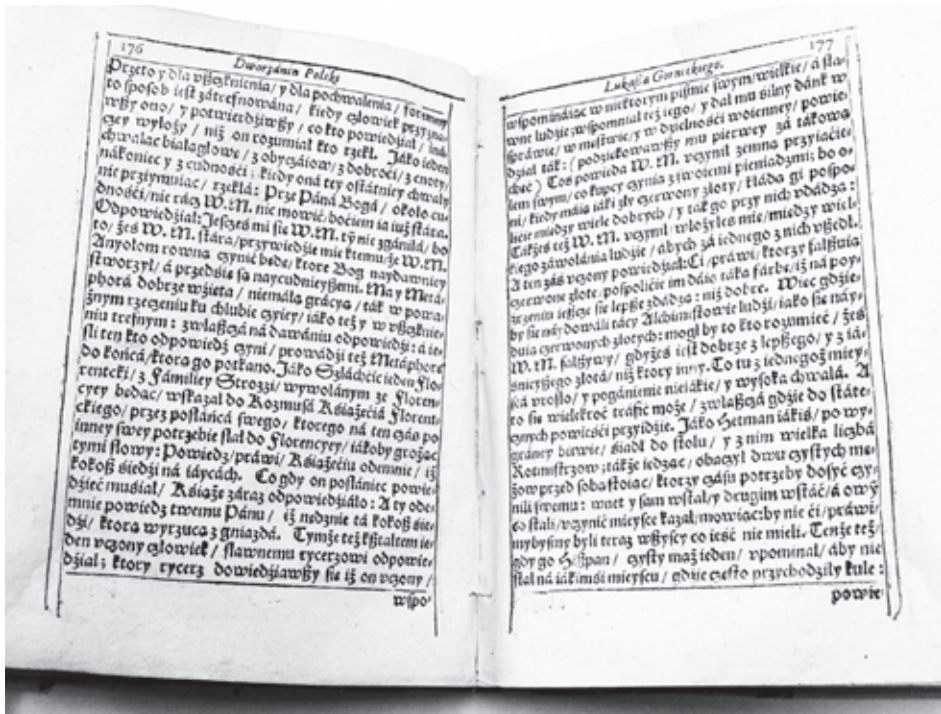 176
Dworzánin Polski
Przeto y dla vßczknienia / y dla pochwalenia / foremny
to sposob iest zátrefnowána / kiedy człowiek przyzna-
wßy ono / y potwierdźiwßy / co kto powiedźiał / iná-
czey wyłoży / niż on rozumiał kto rzekł. Jáko ieden
chwaląc białągłowę / z obyczáiow / z dobroći / z cnoty /
nákoniec y z cudnośći ; kiedy oná tey ostátniey chwały
nie przyymuiąc / rzekłá: Prze Páná Bogá / około cu-
dnośći / nie rácz W. M. nic mowić / boćiem ia iuż stára.
Odpowiedźiał: Jeſzcześ mi ſie W. M. tym nie zgániłá / bo
to / żeś W. M. stára / przywiedźie mię ktemu / że W. M.
Anyołom rowną czynić będę / ktore Bog naydawniey
stworzył / á przedśię są naycudnieyßemi. Ma y Metá-
phorá dobrze wźięta / niemáłą grácyą / ták w powa-
żnym rzeczeniu ku chlubie czyiey / iáko też y w vßczknie-
niu trefnym : zwłaßczá ná dawániu odpowiedźi : á ie-
śli ten kto odpowiedź czyni / prowádźi też Metáphorę
do końcá / ktorą go potkano. Jáko Szláchćic ieden Flo-
rentcki / z Fámiliey Strozzi / wywołánym ze Floren-
cyey będąc / wskazał do Kozmusá Kśiążęćiá Florent-
ckiego / przez posłáńcá swego / ktorego ná ten czás po
inney swey potrzebie słał do Florencyey / iákoby grożąc
tymi słowy: Powiedz / práwi / Kśiążęćiu odemnie / iż
kokoß śiedźi ná iáycách. Co gdy on posłániec powie-
dźieć muśiał / Kśiążę záraz odpowiedźiáło: A ty ode-
mnie powiedz twemu Pánu / iż nędznie tá kokoß śie-
dźi / ktorą wyrzucą z gniazdá. Tymże też kßtałtem ie-
den vczony człowiek / sławnemu rycerzowi odpowie-
dźiał ; ktory rycerz dowiedźiawßy ſie iż on vczony /
wspo-
177
Lukaßá Gornickiego.
wspomináiąc w niektorym piśmie swym / wielkie / á sła-
wne ludźie / wspomniał też iego / y dał mu śilny dánk w
spráwie / w męstwie / y w dźielnośći woienney / powie-
dźiał ták: ( podźiękowawßy mu pierwey zá tákową
chęć ) Toś powiedá W. M. vczynił zemną przyiaćie-
lem swym / co kupcy czynią z swoiemi pieniądzmi ; bo o-
ni / kiedy máią iáki zły czerwony złoty / kłádą gi pospo-
lićie między wiele dobrych / y ták go przy nich vdádzą :
Tákżeś też W. M. vczynił / włożyłeś mię / między wiel-
kiego záwołánia ludźie / ábych zá iednego z nich vßedł.
A ten zás vczony powiedźiał: Ci / práwi / ktorzy fałßuią
czerwone złote / pospolićie im dáią táką fárbę / iż ná poy-
rzeniu ieſzcze ſie lepße zdádzą : niż dobre. Więc gdźie-
by ſie náydowáli tácy Alchimistowie ludźi / iáko ſie náy-
duią czerwonych złotych : mogł by to kto rozumieć / żeś
W. M. fałßywy / gdyżeś iest dobrze z lepßego / y z iá-
śnieyßego złotá / niż ktory inny. To tu z iednegoż miey-
scá vrosło / y pogánienie nieiákie / y wysoka chwałá. A
to ſie wielekroć tráfić może / zwłaßczá gdźie do státe-
cznych powieśći przyidźie. Jáko Hetman iákiś / po wy-
gráney bitwie / śiadł do stołu / y z nim wielka liczbá
Rotmistrzow ; tákże iedząc / obaczył dwu czystych mę-
żow przed sobą stoiąc / ktorzy czásu potrzeby dosyć czy-
nili swemu : wnet y sam wstał / y drugim wstáć / á owym
co stali / vczynić mieysce kazał / mowiąc: by nie ći / práwi /
mybysmy byli teraz wßyscy co ieść nie mieli. Tenże też /
gdy go Hißpan / czysty mąż ieden / vpominał / áby nie
stał ná iákimśi mieyscu / gdźie często przychodźiły kule :
powie-